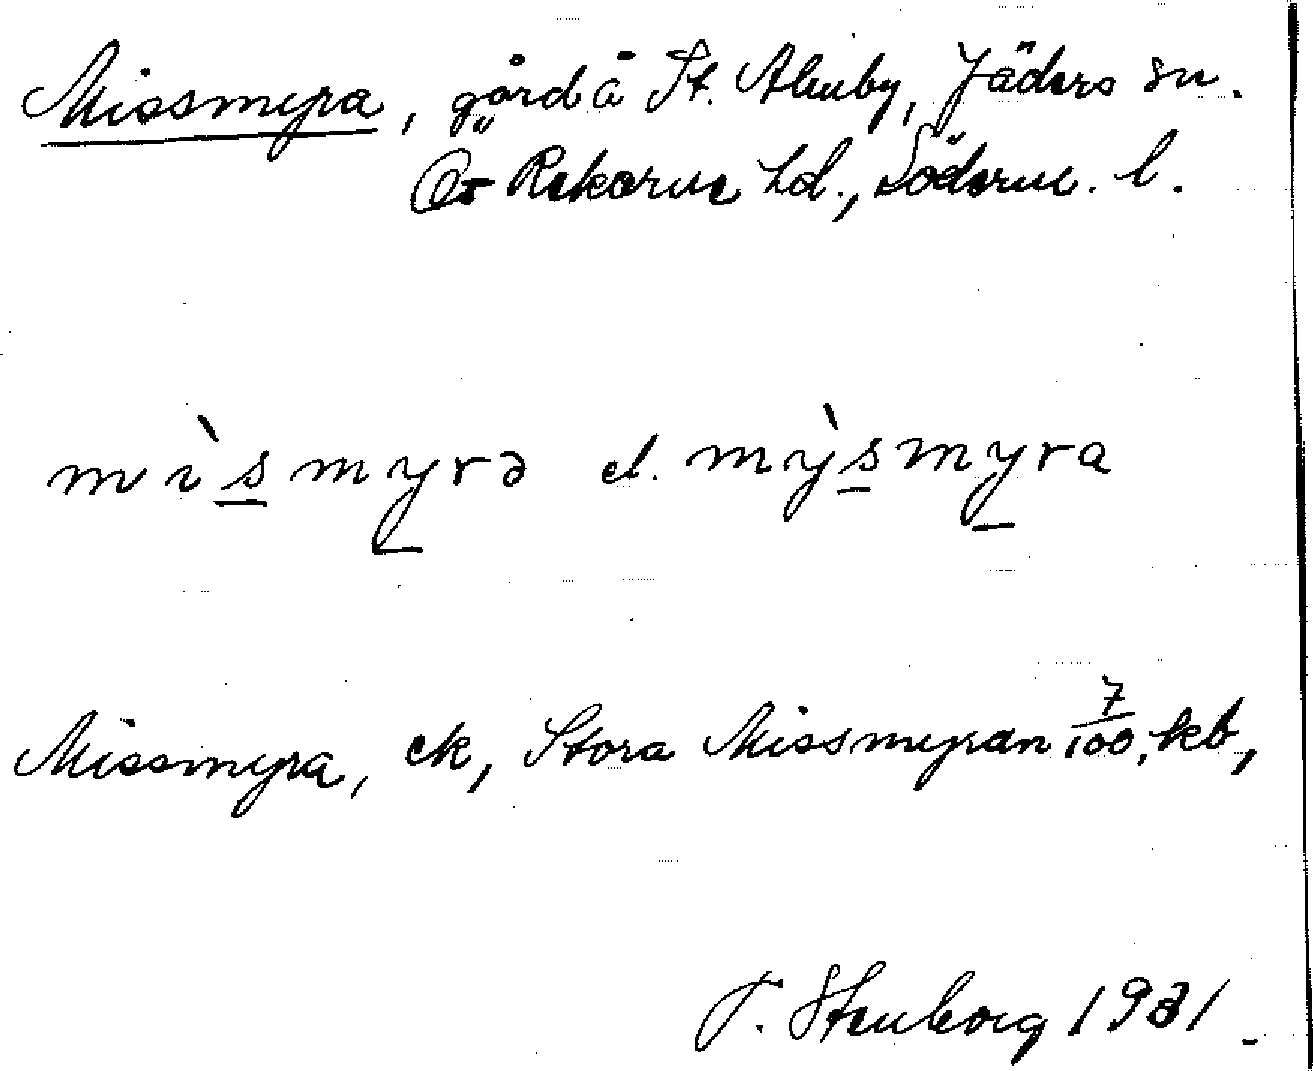 Missmyra, gård å St. Almby, Jäders sn.
Ö. Rekarne hd., Söderm. l.
mìsmyrə el. mỳsmyra
Missmyra, ek, Stora Missmyran 7/100, kb,
T. Stenborg 1931